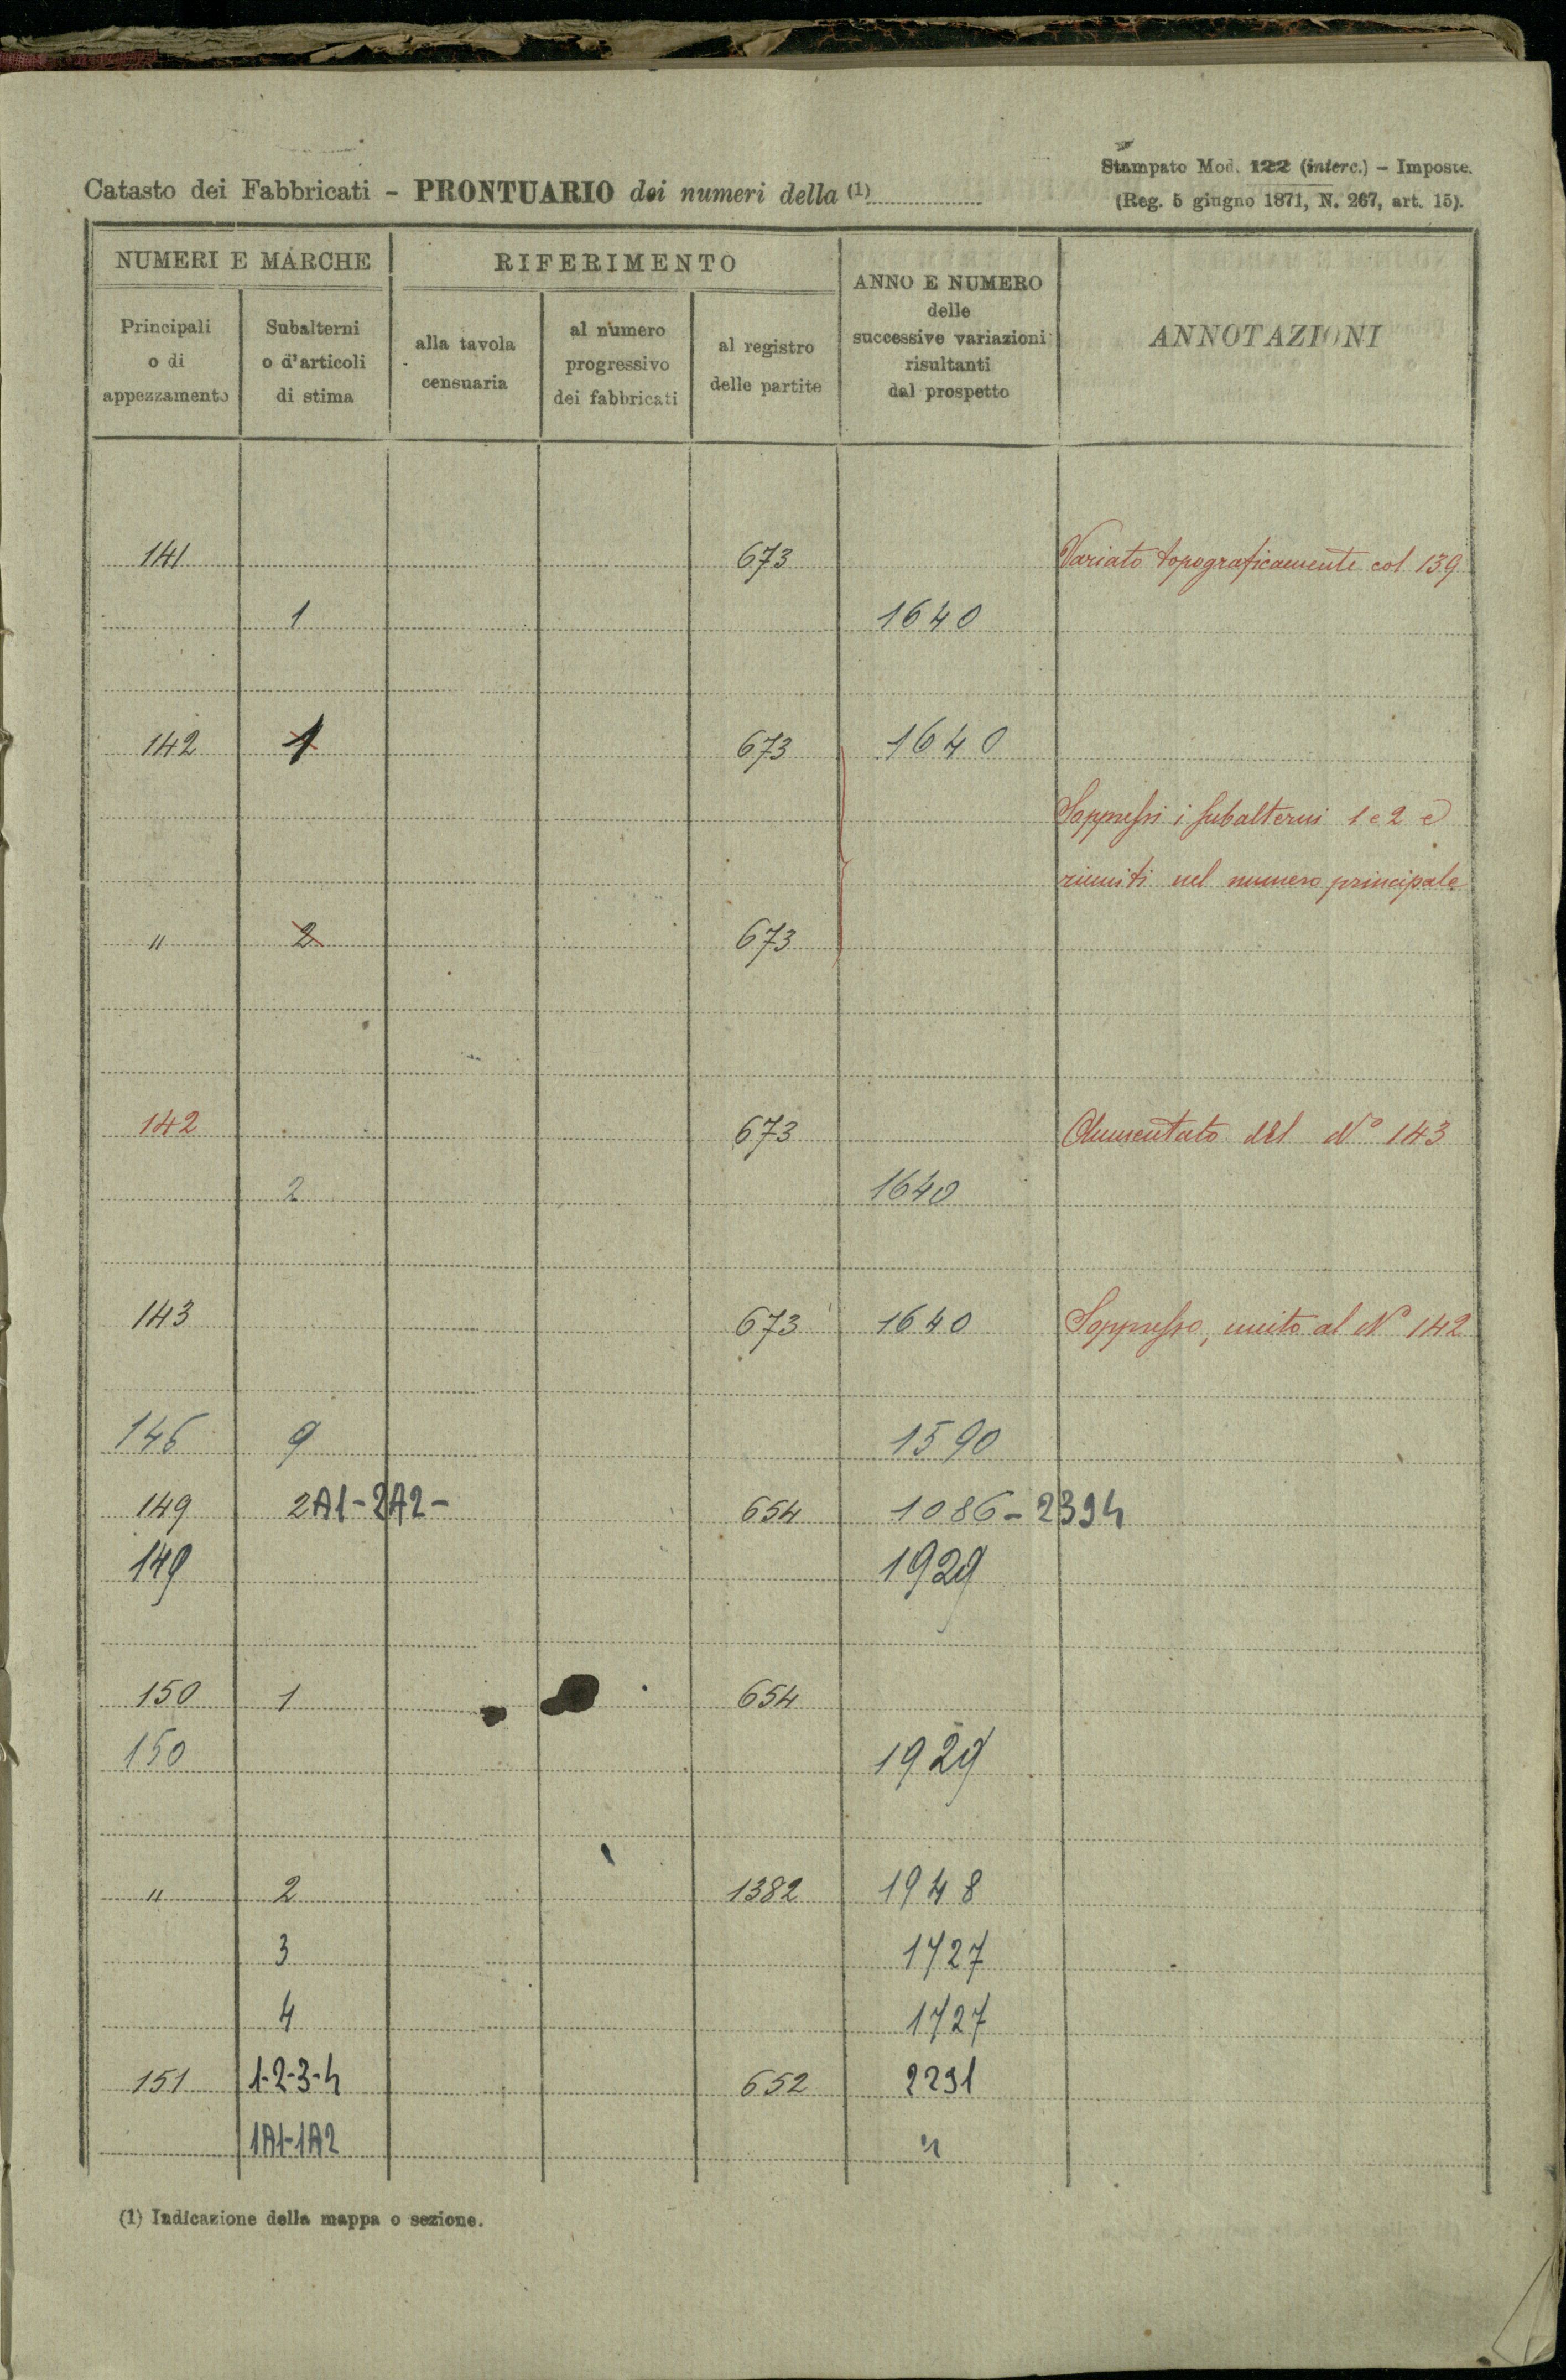 Stampato Mod. 122 (interc.) – Imposte.
Catasto dei Fabbricati – PRONTUARIO dei numeri della (1)
(Reg. 5 giugno 1871, N. 267, art. 15).
NUMERI E MARCHE
RIFERIMENTO
ANNO E NUMERO
delle
successive variazioni
risultanti
dal prospetto
ANNOTAZIONI
Principali
o di
appezzamento
Subalterni
o d'articoli
di stima
alla tavola
censuaria
al numero
progressivo
dei fabbricati
al registro
delle partite
141 673 Variato topograficamente col 139
1 1640
142 1 673 1640
Soppressi i subalterni 1 e 2 e
riuniti nel numero principale
" 2 673
142 673 Aumentato del N° 143
2 1640
143 673 1640 Soppresso, unito al N° 142
146 9 1590
149 2A1-2A2- 654 1086-2394
149 1929
150 1 654
150 1929
" 2 1382 1948
3 1727
4 1727
151 1-2-3-4 652 2291
1A1-1A2 "
(1) Indicazione della mappa o sezione.